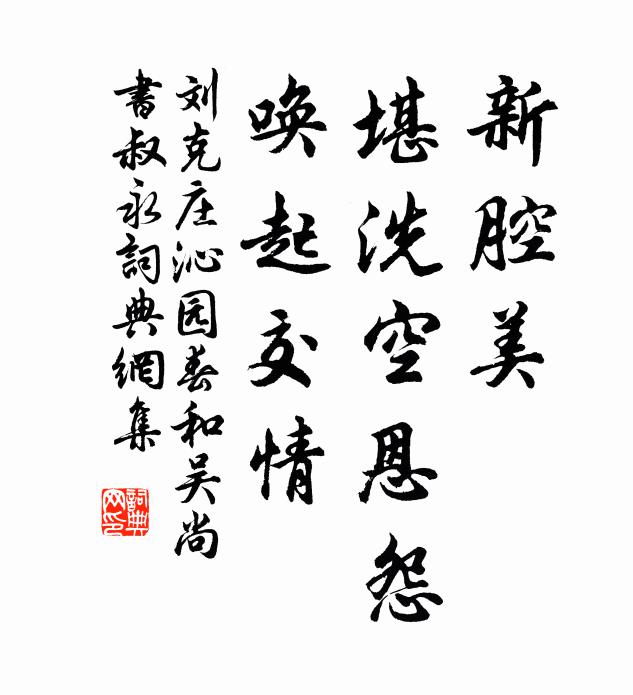 新腔美
堪洗空恩怨
唤起交情
刘克庄沁园春和吴尚
書叔永詞典網集
詞典网印